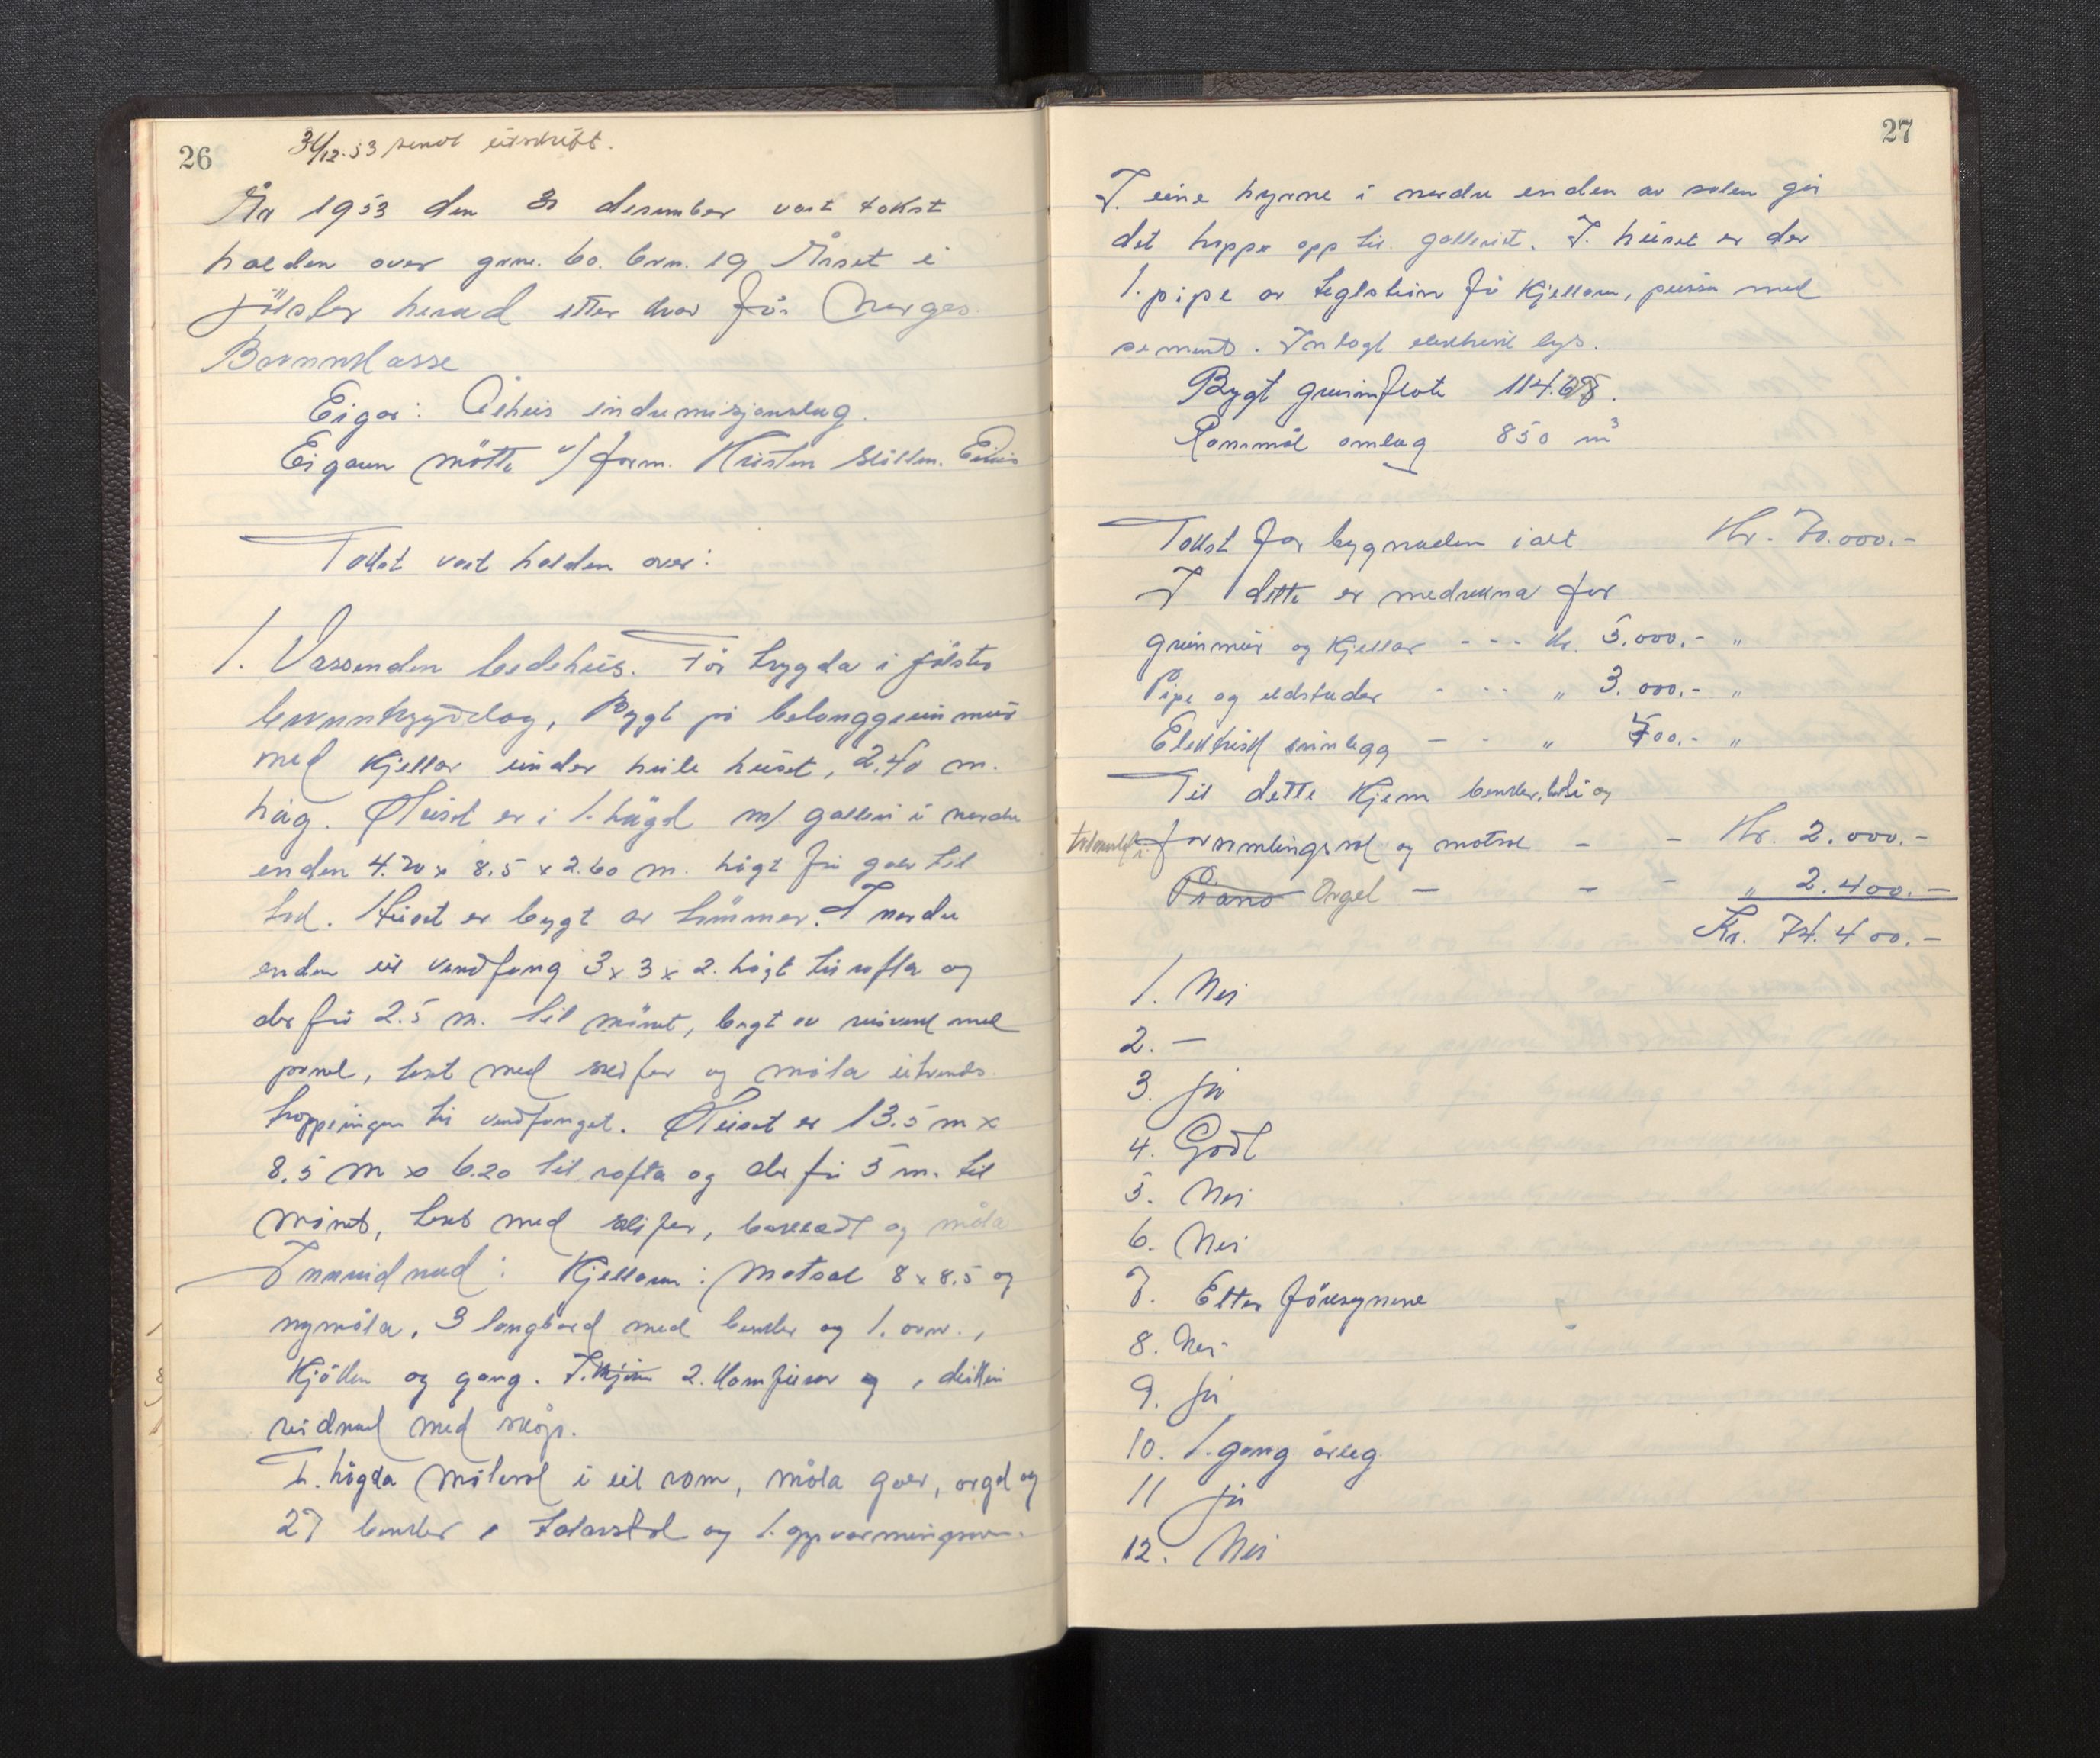 26
31/12-53 sendt utskrift.
År 1953 den 8 desember vart takst
halden over gnr. 60. brn. 19 Årset i
Jölster herad etter krav frå Norges
Brannkasse
Eigar: Ålhus indremisjonslag.
Eigaren møtte v/ form. Kristen
Takst vart halden over:
1. Vassenden bedehus. Før trygda i Jölster
branntrygdelag, Bygt på betonggrunnmur
med kjellar under heile huset, 2.40 m.
høg. Huset er i 1. høgd m/ galleri i nerdre
enden 4.20 x 8.5 x 2.60 m. høgt frå golv til
tak. Huset er bygt av tømmer. I nerdre
enden eit vindfang 3 x 3 x 2. høgt til rafta og
der frå 2.5 m. til mönet, bygt av reisverk med
panel, tekt med skifer og måla utvendes.
trappeingen til vindfanget. Huset er 13.5 m x
8.5 m x 6.20 til rafta og der frå 5 m. til
mönet, tekt med skifer, og måla
Innreidnad: Kjellaren: Matsal 8 x 8.5 og
nymåla, 3 langbord med benker og 1. omn.,
Kjöken og gang. I. 2. komfurar og,
reidnad med skåp.
1. høgda målesal i eit rom, måla golv, orgel og
27 benker, talarstol og 1. oppvarmingsomn.
27
I eine hyrne i nerdre enden av salen går
det trappe opp til galleriet. I huset er der
1. pipe av teglstein frå kjellaren, pussa med
sement. Innlagt elektrisk lys.
Bygt grunnflate 114.
Rommål omlag 850 m³
Takst for bygnaden i alt Kr. 70.000.-
I dette er medrekna for
grunnmur og kjellar - - - kr. 5.000.- "
Pipe og eldstader - - - " 3.000.- "
Elektrisk innlegg - - " 700.- "
Til dette kjem benker, og
forsamlingssal og matsal - - Kr. 2.000.-
Piano Orgel - - - " 2.400.-
Kr. 74.400.-
1. Nei
2. -
3. Ja
4. Godt
5. Nei
6. Nei
7. Etter föresegnene
8. Nei
9. Ja
10. 1. gang årleg.
11 Ja
12. Nei